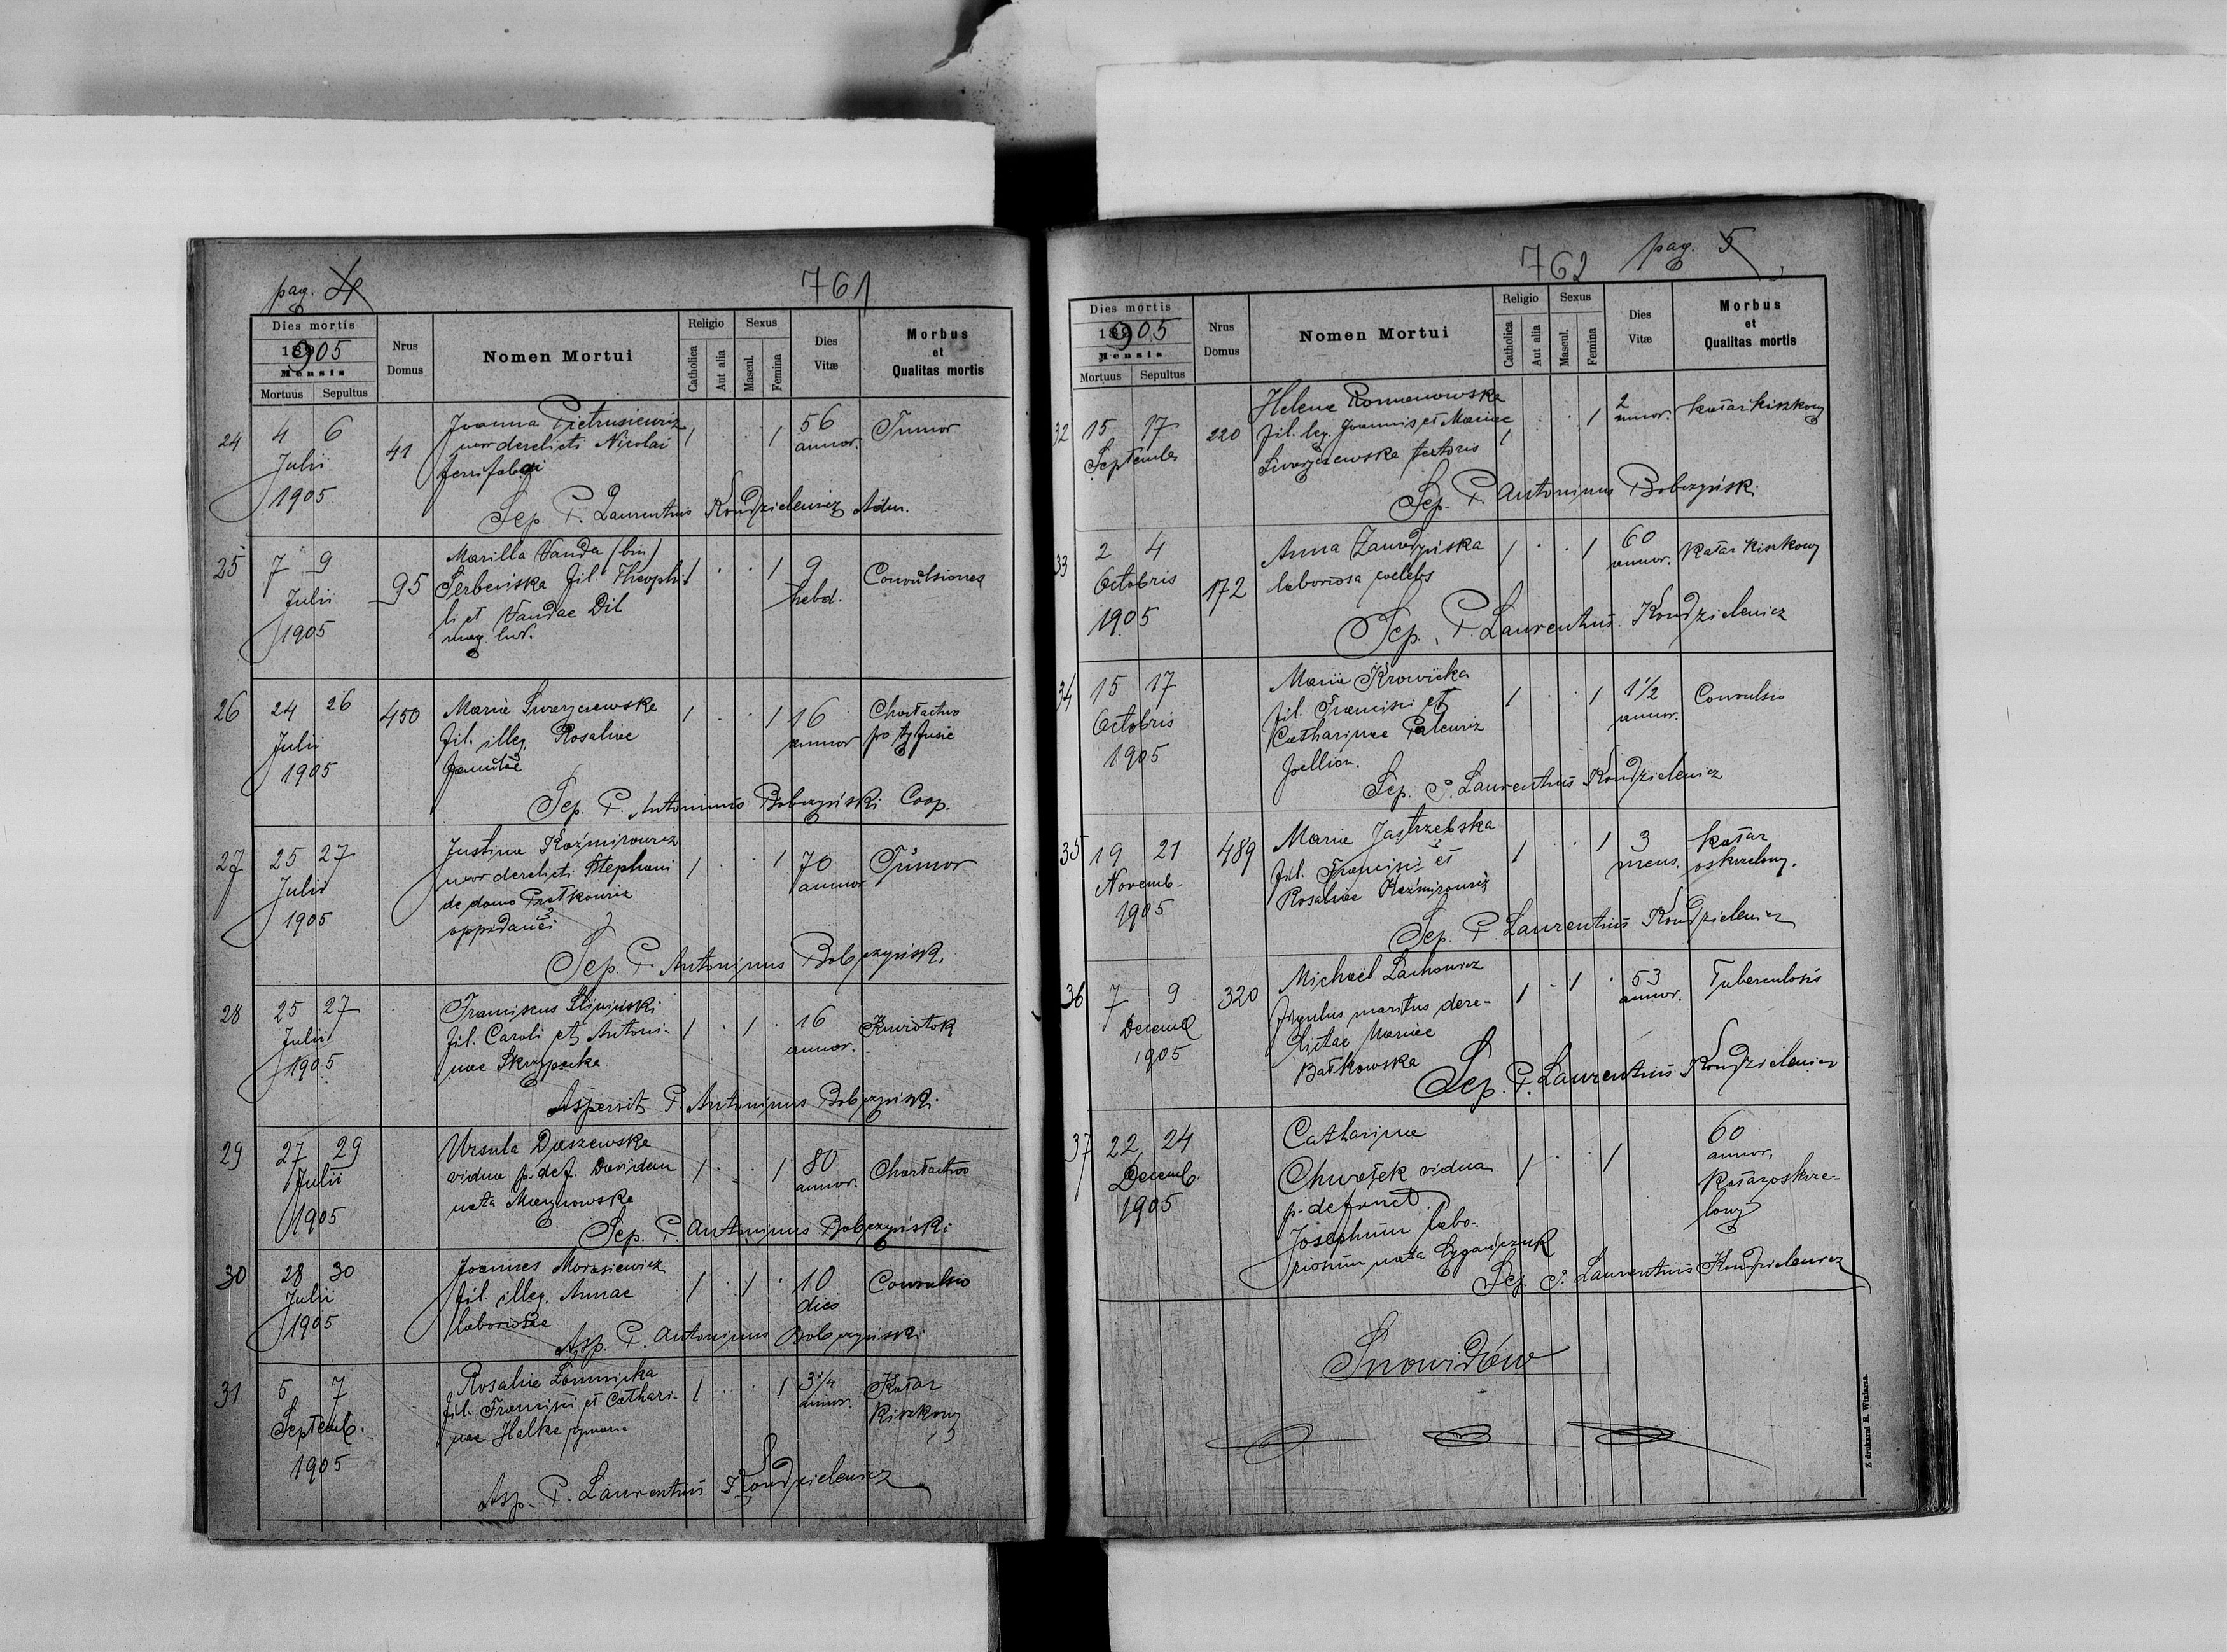 pag. 4
761
Dies mortis
1905
Mensis
Mortuus Sepultus
Nrus
Domus
Nomen Mortui
Religio
Catholica
Aut alia
Sexus
Mascul.
Femina
Dies
Vitæ
Morbus
et
Qualitas mortis
24 4 6 Julii 1905 41
Joanna Pietrusiewicz
uxor derelicti Nicolai
ferrifabri
1 1 56 annor. Tumor
Sep. P. Laurentius Kondzielewicz Adm.
25 7 9 Julii 1905 95
Marilla Vanda (bin)
Serbeńska fil. Theophi-
li et Vandae Dil
mag. lud.
1 1 9 hebd. Convulsiones
26 24 26 Julii 1905 450
Maria Swaryczewska
fil. illeg. Rosaliae
famulae
1 1 16 annor Charłactwo
po tyfusie
Sep. P. Antoninus Bobczyński Coop.
27 25 27 Julii 1905
Justina Kaźmirowicz
uxor derelicti Stephani
de domo Pratkowic
oppidanei
1 1 70 annor Tumor
Sep. P. Antoninus Bobczyński
28 25 27 Julii 1905
Franciscus Śliwiński
fil. Caroli et Antoni-
nae Skrzypecka
1 1 16 annor. Krwiotok
Aspersit P. Antoninus Bobczyński
29 27 29 Julii 1905
Ursula Daszewska
vidua p. def. Davidem
nata Mazynowska
1 1 80 annor. Charłactwo
Sep. P. Antoninus Bobczyński
30 28 30 Julii 1905
Joannes Morasiewicz
fil. illeg. Annae
laboriosae
1 1 10 dies Convulsio
Asp. P. Antoninus Bobczyński
31 5 7 Septemb. 1905
Rosalia Łomnicka
fil. Francisci et Cathari-
nae Halka
1 1 3 1/4 annor. Katar
kiszkowy
Asp. P. Laurentius Kondzielewicz
762
pag. 5
Dies mortis
1905
Mensis
Mortuus Sepultus
Nrus
Domus
Nomen Mortui
Religio
Catholica
Aut alia
Sexus
Mascul.
Femina
Dies
Vitæ
Morbus
et
Qualitas mortis
32 15 17 September 220
Helena Romanowska
fil. leg. Joannis et Mariae
Swaryczewska
1 1 2 annor. Katar kiszkowy
Sep. P. Antoninus Bobczyński
33 2 4 Octobris 1905 172
Anna Zawadyńska
laboriosa coelebs
1 1 60 annor. Katar kiszkowy
Sep. P. Laurentius Kondzielewicz
34 15 17 Octobris 1905
Maria Krowicka
fil. Francisci et
Catharinae Palewicz
pellion.
1 1 1 1/2 annor. Convulsio
Sep. P. Laurentius Kondzielewicz
35 19 21 Novemb. 1905 489
Maria Jastrzebska
fil. Francisci et
Rosaliae Kaźmirowicz
1 1 3 mens. Katar
oskrzelowy.
Sep. P. Laurentius Kondzielewicz
36 7 9 Decemb 1905 320
Michael Lachowicz
figulus maritus dere-
lictae Mariae
Bałkowska
1 1 53 annor. Tuberculosis
Sep. P. Laurentius Kondzielewicz
37 22 24 Decemb. 1905
Catharina
Chwałek vidua
p. defunct.
Josephum labo-
riosum nata Cygańczuk
1 1 60
annor.
Katar oskrze-
lowy
Sep. P. Laurentius Kondzielewicz
Snowidów
Z drukarni E. Winiarza.